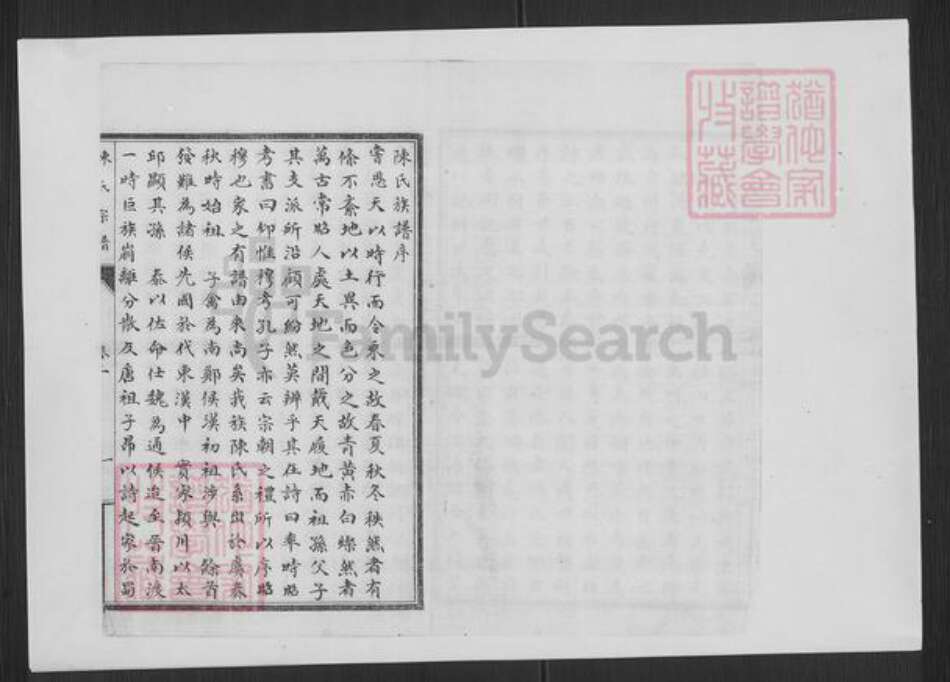 陳氏族譜序
嘗思天以時行而令乘之故春夏秋冬秩然者有
條不紊地以土異而色分之故青黃赤白燦然者
萬古常昭人處天地之間戴天履地而祖孫父子
其支派所沿顧可紛然莫辨乎其在詩曰率時昭
考書曰仰惟穆考孔子亦云宗廟之禮所以序昭
穆也家之有譜由來尚矣我族陳氏系出於虞春
秋時始祖 子禽為南鄭侯漢初祖涉與 餘首
發難為諸侯先國於代東漢中 實家潁川以太
邱顯其孫 泰以佐命仕魏為通侯迨至晉南渡
一時巨族崩離分散及唐祖子昂以詩起家於蜀
陳氏宗譜
猶他家
譜學會
收藏
FamilySearch